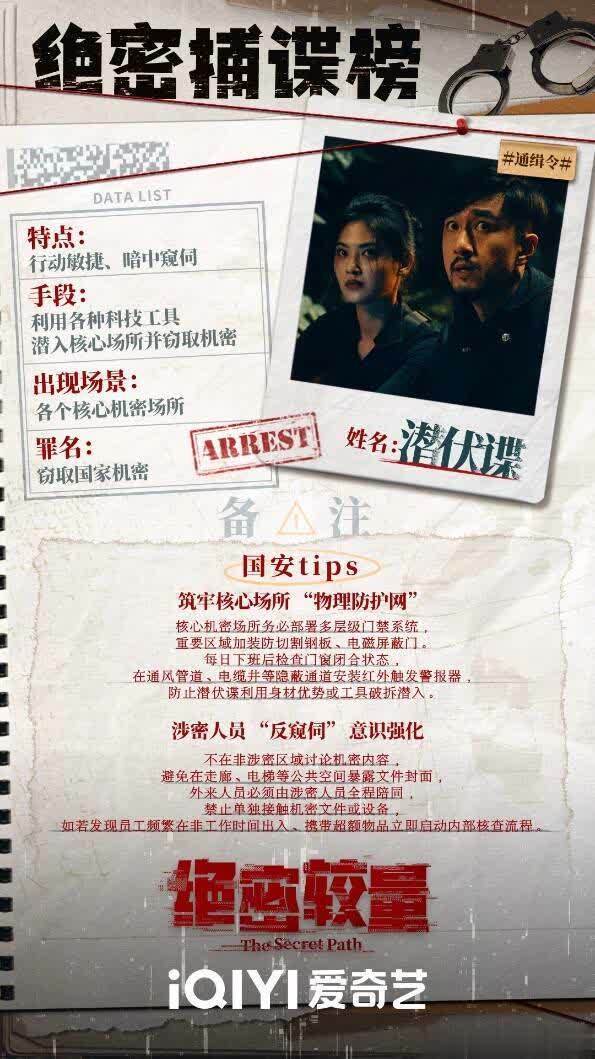 绝密捕谍榜
#通缉令#
DATA LIST
特点：
行动敏捷、暗中窥伺
手段：
利用各种科技工具
潜入核心场所并窃取机密
出现场景：
各个核心机密场所
罪名：
窃取国家机密
ARREST
姓名：潜伏谍
备注
国安tips
筑牢核心场所“物理防护网”
核心机密场所务必部署多层级门禁系统，
重要区域加装防切割钢板、电磁屏蔽门。
每日下班后检查门窗闭合状态，
在通风管道、电缆井等隐蔽通道安装红外触发警报器，
防止潜伏谍利用身材优势或工具破拆潜入。
涉密人员“反窥伺”意识强化
不在非涉密区域讨论机密内容，
避免在走廊、电梯等公共空间暴露文件封面，
外来人员必须由涉密人员全程陪同，
禁止单独接触机密文件或设备，
如若发现员工频繁在非工作时间出入、携带超额物品立即启动内部核查流程。
绝密较量
The Secret Path
iQIYI 爱奇艺